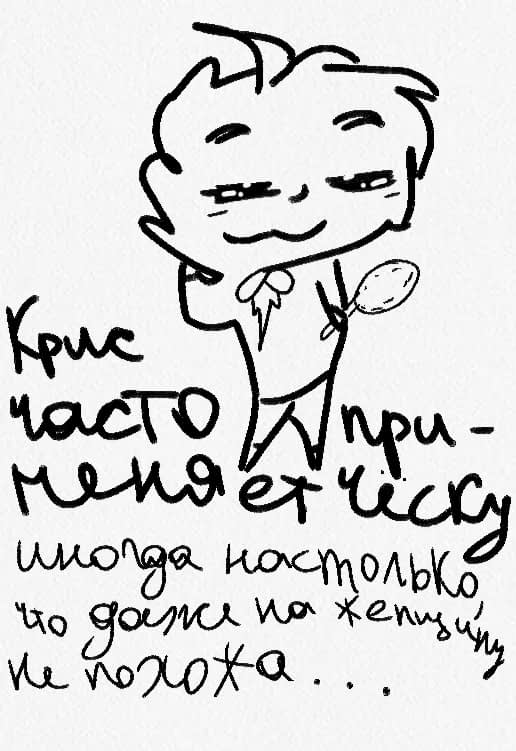 Крис
часто при-
меняет чёску
иногда настолько,
что даже на женщину
не похожа...